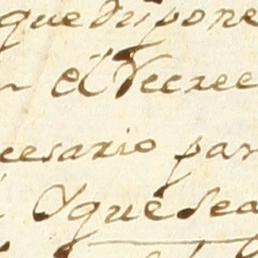 que dispone
el decree
cesario par
y que sea